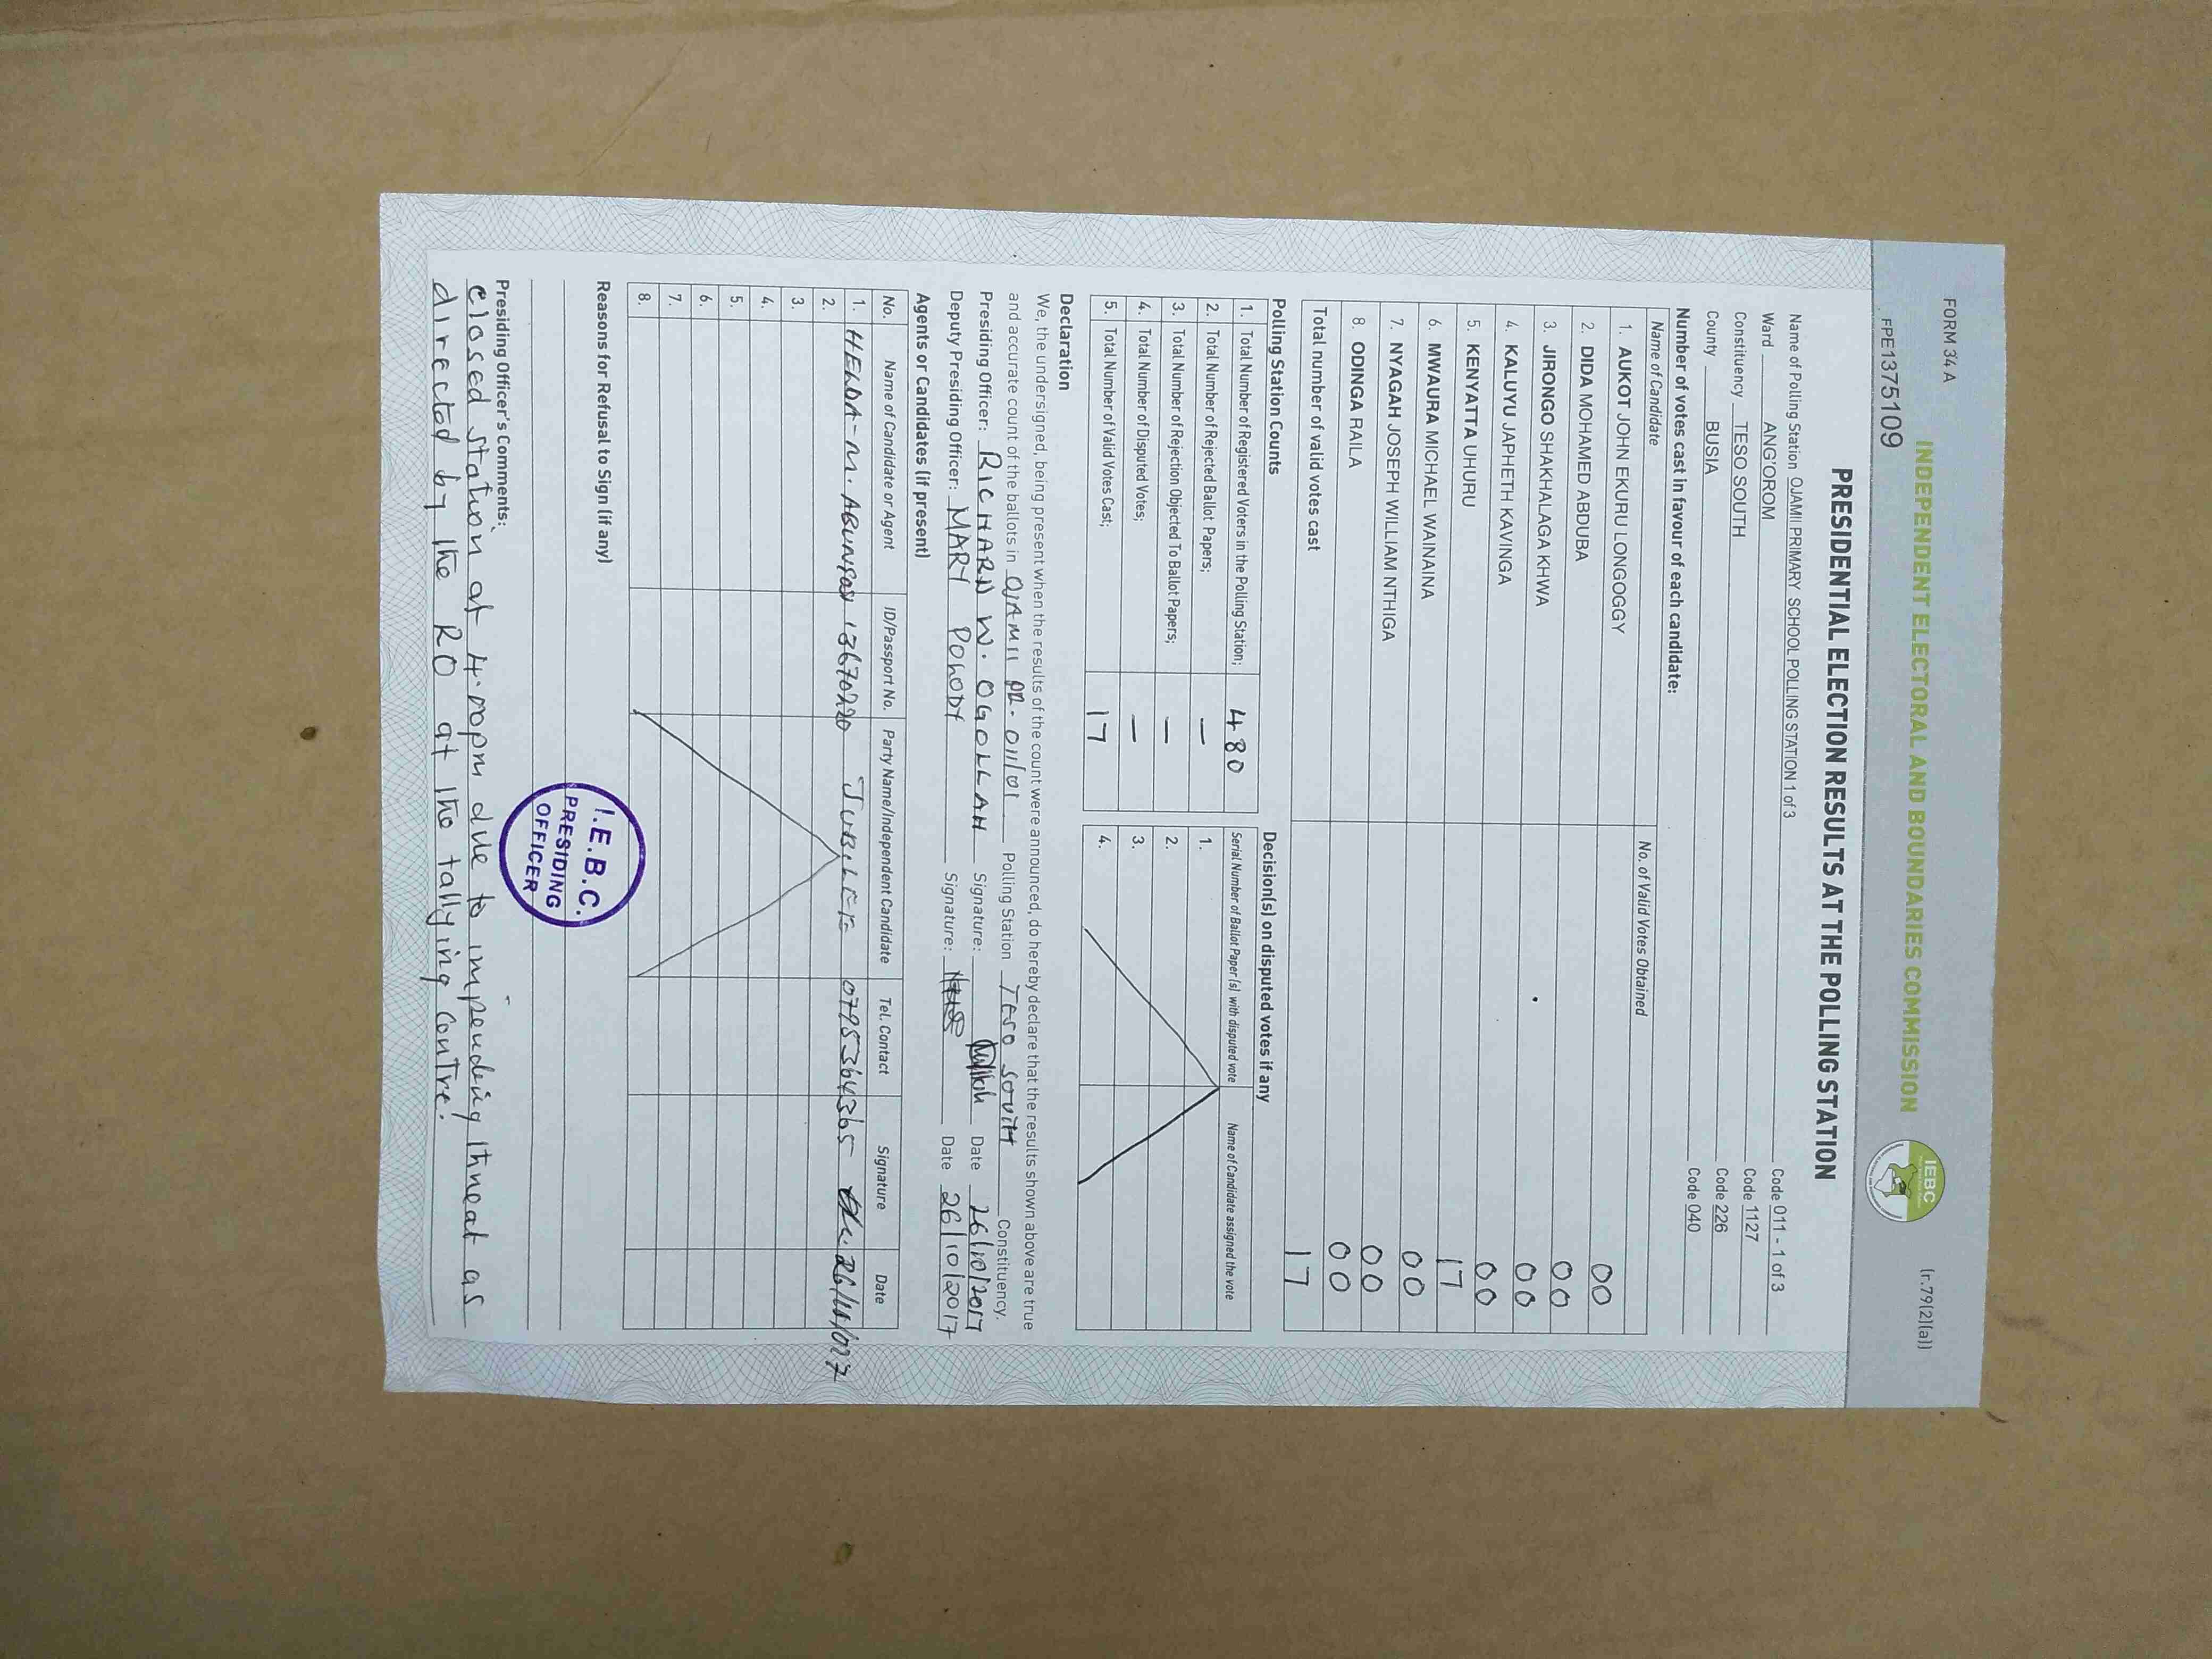 FORM 34 A
(r.79(2)(a))
INDEPENDENT ELECTORAL AND BOUNDARIES COMMISSION
IEBC
FPE1375109
PRESIDENTIAL ELECTION RESULTS AT THE POLLING STATION
Name of Polling Station OJAMII PRIMARY SCHOOL POLLING STATION 1 of 3 Code 011 - 1 of 3
Ward ANG'OROM Code 1127
Constituency TESO SOUTH Code 226
County BUSIA Code 040
Number of votes cast in favour of each candidate:
Name of Candidate No. of Valid Votes Obtained
1. AUKOT JOHN EKURU LONGOGGY 00
2. DIDA MOHAMED ABDUBA 00
3. JIRONGO SHAKHALAGA KHWA 00
4. KALUYU JAPHETH KAVINGA 00
5. KENYATTA UHURU 17
6. MWAURA MICHAEL WAINAINA 00
7. NYAGAH JOSEPH WILLIAM NTHIGA 00
8. ODINGA RAILA 00
Total number of valid votes cast 17
Polling Station Counts
1. Total Number of Registered Voters in the Polling Station; 480
2. Total Number of Rejected Ballot Papers; —
3. Total Number of Rejection Objected To Ballot Papers; —
4. Total Number of Disputed Votes; —
5. Total Number of Valid Votes Cast; 17
Decision(s) on disputed votes if any
Serial Number of Ballot Paper(s) with disputed vote Name of Candidate assigned the vote
1.
2.
3.
4.
Declaration
We, the undersigned, being present when the results of the count were announced, do hereby declare that the results shown above are true
and accurate count of the ballots in OJAMII PR. 011/01 Polling Station TESO SOUTH Constituency.
Presiding Officer: RICHARD W. OGOLLAH Signature: Date 26/10/2017
Deputy Presiding Officer: MARY Signature: Date 26/10/2017
Agents or Candidates (if present)
No. Name of Candidate or Agent ID/Passport No. Party Name/Independent Candidate Tel. Contact Signature Date
1. HELDA M. 13670220 JUBILEE 0795364365
2.
3.
4.
5.
6.
7.
8.
Reasons for Refusal to Sign (if any)
I.E.B.C.
PRESIDING
OFFICER
Presiding Officer's Comments:
closed station at 4.00pm due to impending threat as
directed by the RO at the tallying centre.